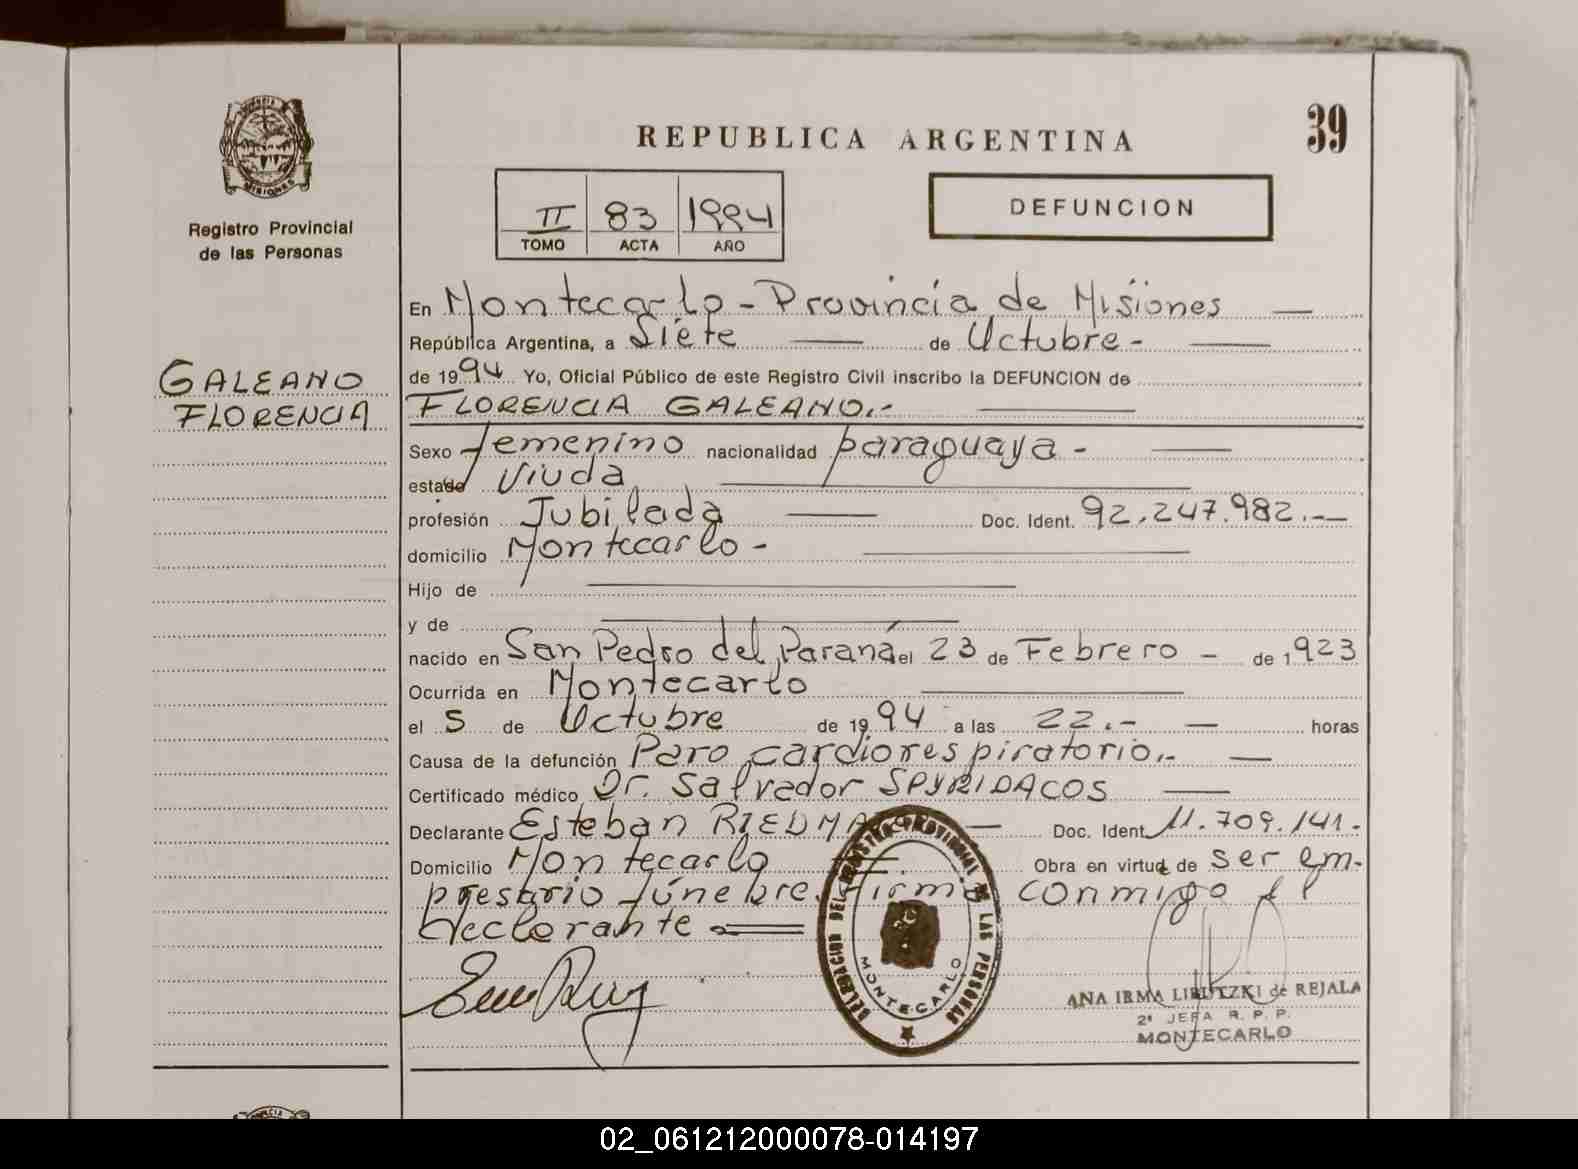 39
REPUBLICA ARGENTINA
PROVINCIA
MISIONES
Registro Provincial
de las Personas
II 83 1994
TOMO ACTA AÑO
DEFUNCION
GALEANO
FLORENCIA
En Montecarlo - Provincia de Misiones
República Argentina, a Siete de Octubre -
de 1994 Yo, Oficial Público de este Registro Civil inscribo la DEFUNCION de
FLORENCIA GALEANO.-
Sexo femenino nacionalidad paraguaya -
estado Viuda
profesión Jubilada Doc. Ident. 92.247.982.-
domicilio Montecarlo -
Hijo de
y de
nacido en San Pedro del Paraná el 23 de Febrero - de 1923
Ocurrida en Montecarlo
el 5 de Octubre de 1994 a las 22.- horas
Causa de la defunción Paro cardiorespiratorio.-
Certificado médico Dr. Salvador SPYRIDACOS
Declarante Esteban Doc. Ident. 11.709.141.
Domicilio Montecarlo Obra en virtud de ser em-
presario fúnebre. Firma conmigo el
declarante
DELEGACION DEL REGISTRO PROVINCIAL DE LAS PERSONAS
MONTECARLO
ANA IRMA de REJALA
2ª JEFA R. P. P.
MONTECARLO
02_061212000078-014197